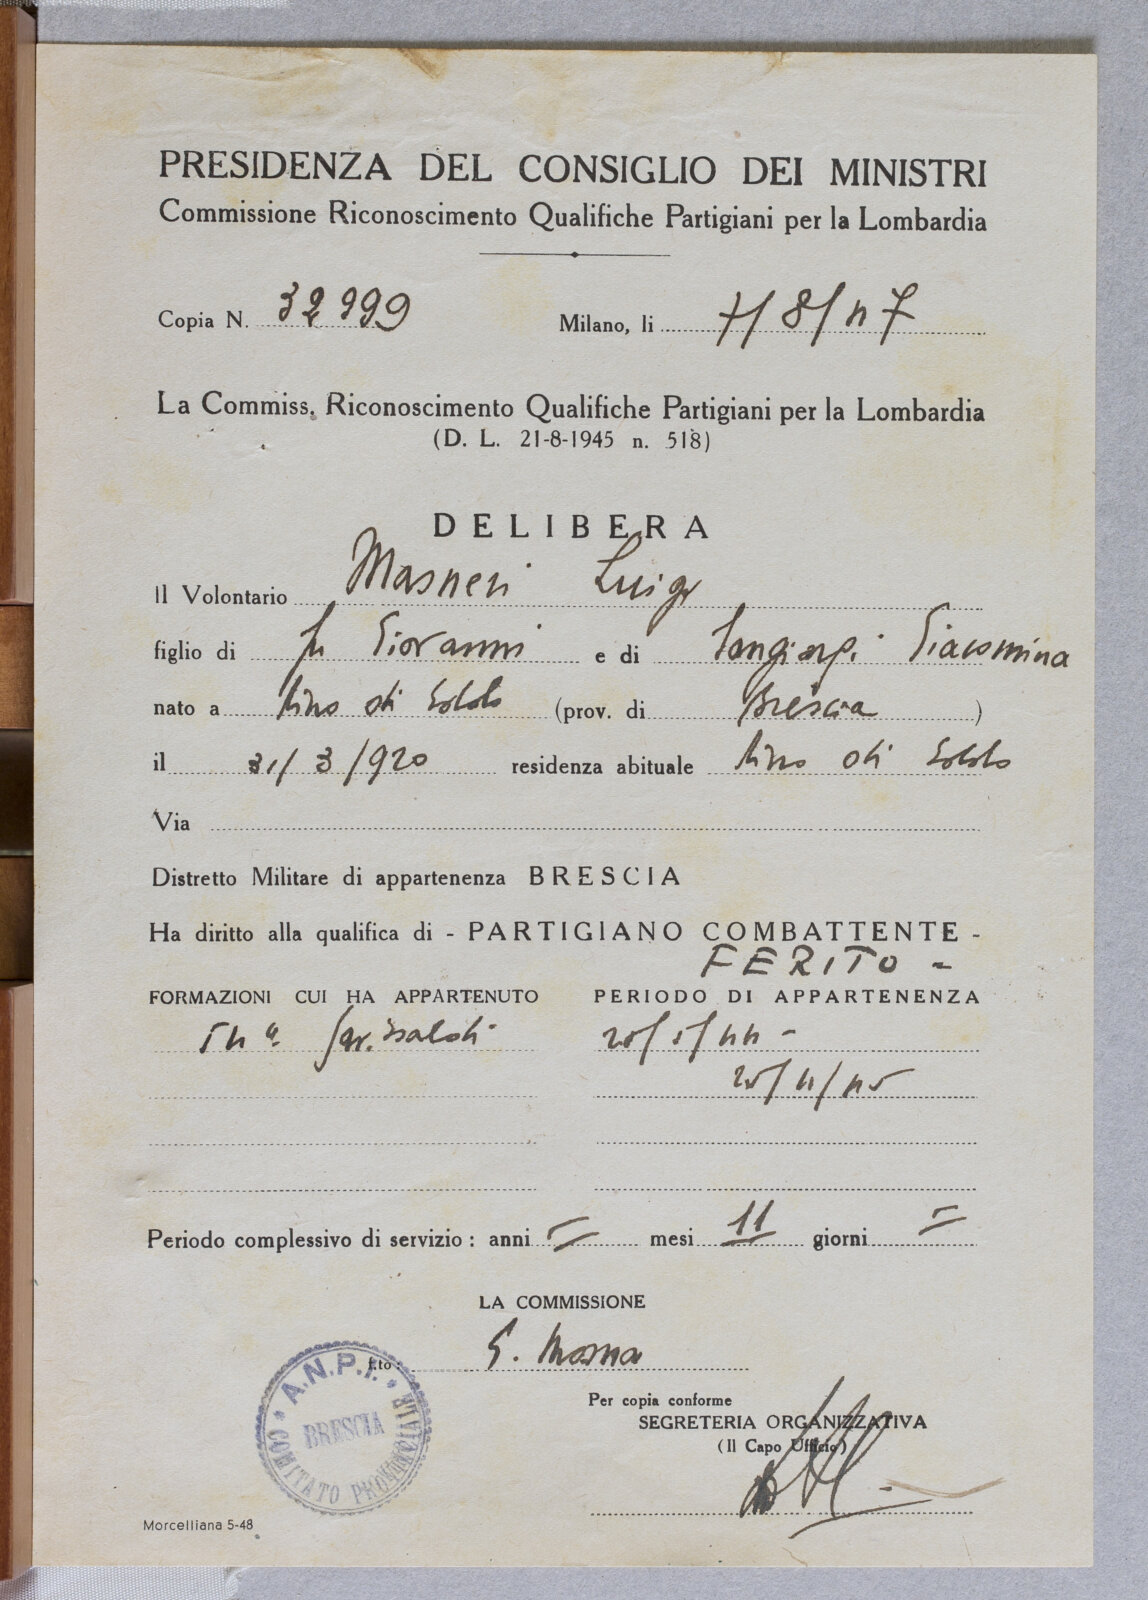 PRESIDENZA DEL CONSIGLIO DEI MINISTRI
Commissione Riconoscimento Qualifiche Partigiani per la Lombardia
Copia N. 32999 Milano, li 7/8/47
La Commiss. Riconoscimento Qualifiche Partigiani per la Lombardia
(D. L. 21-8-1945 n. 518)
DELIBERA
Il Volontario Masneri Luigi
figlio di fu Giovanni e di Sangiorgi Giacomina
nato a di (prov. di Brescia)
il 31/3/920 residenza abituale di
Via
Distretto Militare di appartenenza BRESCIA
Ha diritto alla qualifica di - PARTIGIANO COMBATTENTE -
FERITO -
FORMAZIONI CUI HA APPARTENUTO PERIODO DI APPARTENENZA
54ª Garibaldi 25/5/44 -
25/4/45
Periodo complessivo di servizio: anni = mesi 11 giorni =
LA COMMISSIONE
f.to: G.
Per copia conforme
SEGRETERIA ORGANIZZATIVA
(Il Capo Ufficio)
A.N.P.I. COMITATO PROVINCIALE
BRESCIA
Morcelliana 5-48